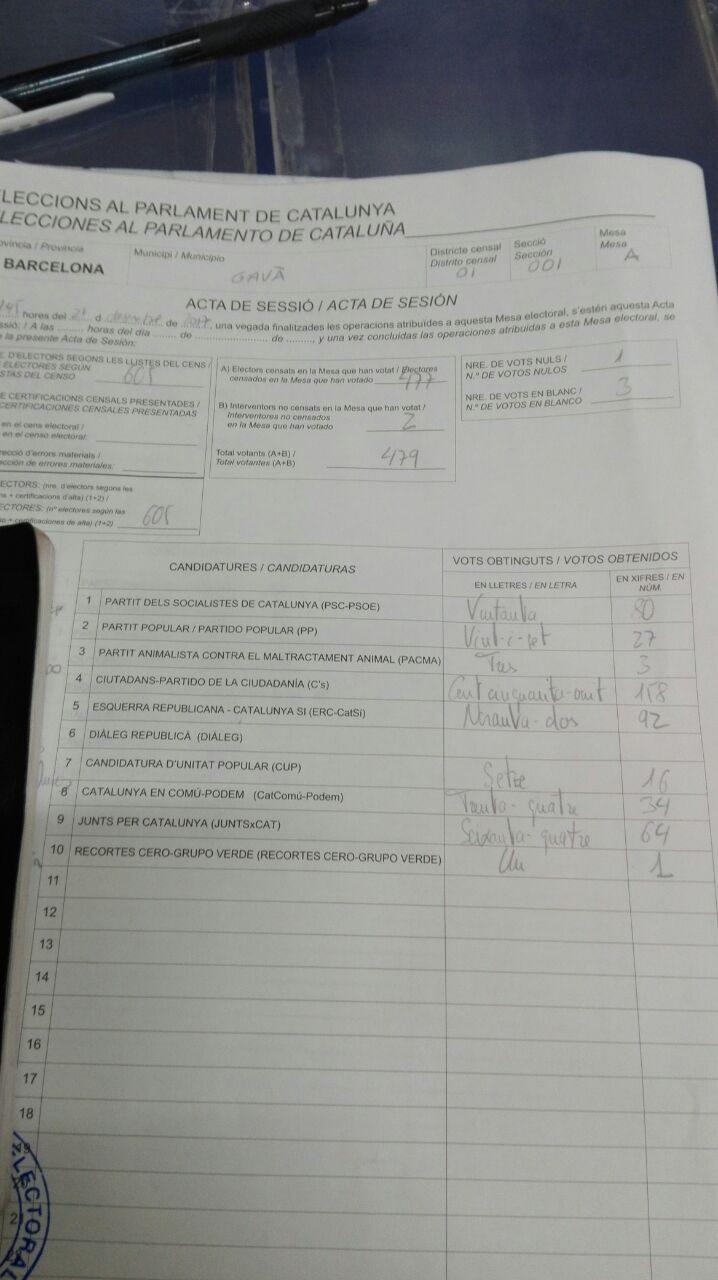 LECCIONS AL PARLAMENT DE CATALUNYA
LECCIONES AL PARLAMENTO DE CATALUÑA
ovíncia / Provincia
BARCELONA
Municipi / Municipio
GAVÀ
Districte censal
Distrito censal
01
Secció
Sección
001
Mesa
Mesa
A
ACTA DE SESSIÓ / ACTA DE SESIÓN
hores del 21 d desembre de 2017, una vegada finalitzades les operacions atribuïdes a aquesta Mesa electoral, s'estén aquesta Acta
ssió: / A las ........ horas del día ........ de ........ de ........, y una vez concluidas las operaciones atribuidas a esta Mesa electoral, se
e la presente Acta de Sesión:
E. D'ELECTORS SEGONS LES LLISTES DEL CENS /
ELECTORES SEGÚN
STAS DEL CENSO
605
E CERTIFICACIONS CENSALS PRESENTADES /
CERTIFICACIONES CENSALES PRESENTADAS
en el cens electoral /
en el censo electoral:
recció d'errors materials /
cción de errores materiales:
ECTORS: (nre. d'electors segons les
ns + certificacions d'alta) (1+2) /
ECTORES: (nº electores según las
o + certificaciones de alta) (1+2)
605
A) Electors censats en la Mesa que han votat / Electores
censados en la Mesa que han votado
477
B) Interventors no censats en la Mesa que han votat /
Interventores no censados
en la Mesa que han votado
2
Total votants (A+B) /
Total votantes (A+B)
479
NRE. DE VOTS NULS /
N.º DE VOTOS NULOS
1
NRE. DE VOTS EN BLANC /
N.º DE VOTOS EN BLANCO
3
CANDIDATURES / CANDIDATURAS
VOTS OBTINGUTS / VOTOS OBTENIDOS
EN LLETRES / EN LETRA
EN XIFRES / EN NÚM.
1 PARTIT DELS SOCIALISTES DE CATALUNYA (PSC-PSOE) 80
2 PARTIT POPULAR / PARTIDO POPULAR (PP) Vint-i-set 27
3 PARTIT ANIMALISTA CONTRA EL MALTRACTAMENT ANIMAL (PACMA) Tres 3
4 CIUTADANS-PARTIDO DE LA CIUDADANÍA (C's) Cent cinquanta-vuit 158
5 ESQUERRA REPUBLICANA - CATALUNYA SI (ERC-CatSí) Noranta-dos 92
6 DIÀLEG REPUBLICÀ (DIÀLEG)
7 CANDIDATURA D'UNITAT POPULAR (CUP) Setze 16
8 CATALUNYA EN COMÚ-PODEM (CatComú-Podem) Trenta-quatre 34
9 JUNTS PER CATALUNYA (JUNTSxCAT) Seixanta-quatre 64
10 RECORTES CERO-GRUPO VERDE (RECORTES CERO-GRUPO VERDE) Un 1
11
12
13
14
15
16
17
18
2
LECTORAL